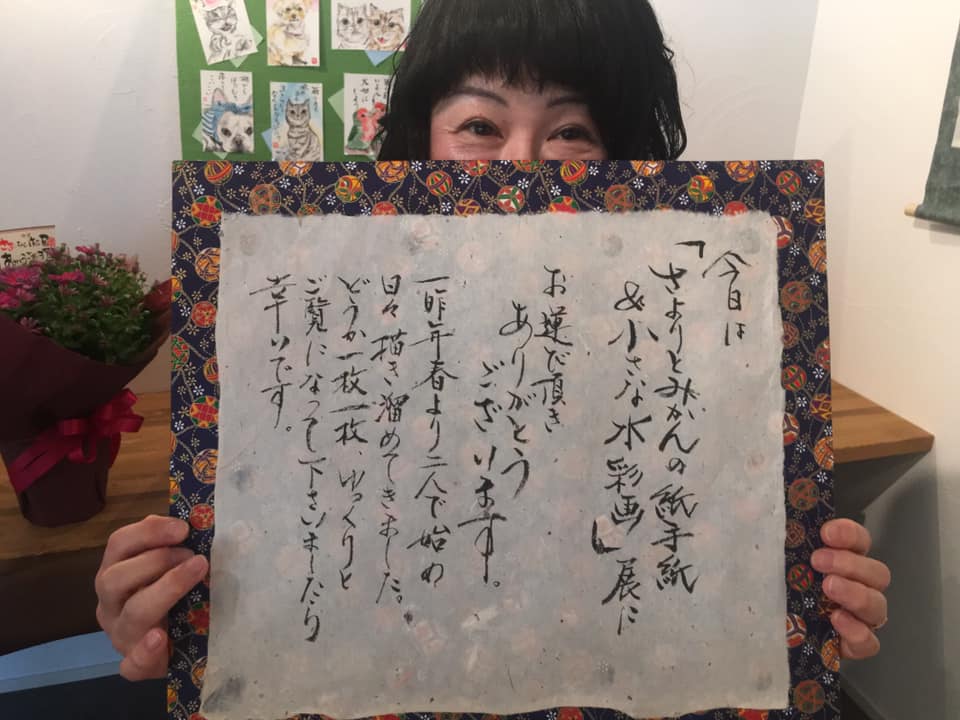 今日は
「さよりとみかんの紙手紙
&小さな水彩画」展に
お運び頂き
ありがとう
ございます。
一昨年春より二人で始め
日々描き溜めてきました。
どうか一枚一枚、ゆっくりと
ご覧になって下さいましたら
幸いです。